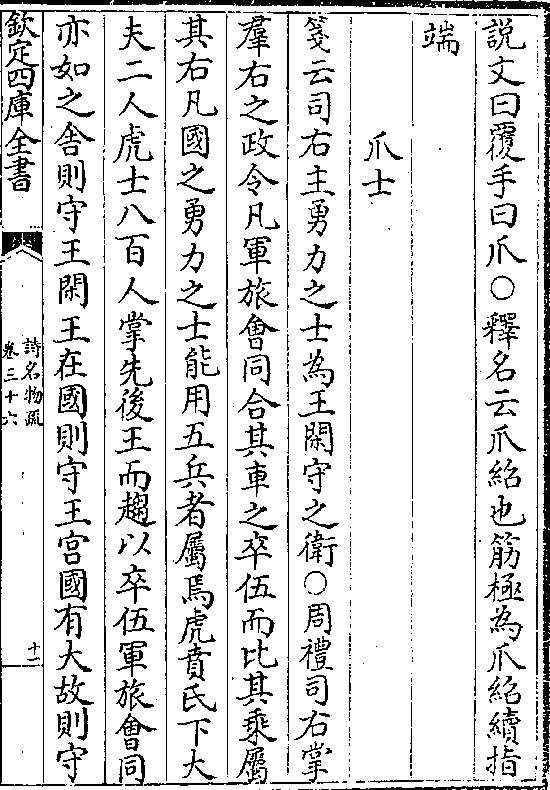 説文曰覆手曰爪○釋名云爪紹也筋極為爪紹續指
端
爪士
箋云司右主勇力之士為王閑守之衛○周禮司右掌
羣右之政令凡軍旅會同合其車之卒伍而比其乘屬
其右凡國之勇力之士能用五兵者屬焉虎賁氏下大
夫二人虎士八百人掌先後王而趨以卒伍軍旅會同
亦如之舍則守王閑王在國則守王宫國有大故則守
欽定四庫全書
詩名物疏
卷三十六
十一